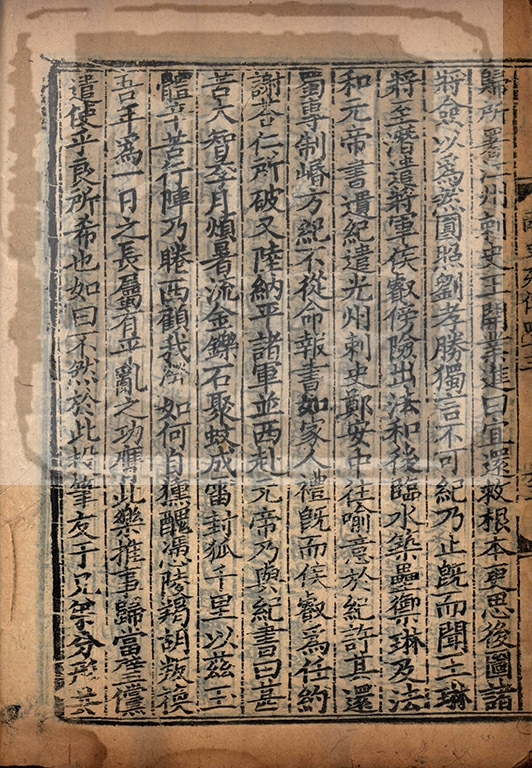 歸所署江州刺史王開業進曰宜還救根本更思後圖諸
將僉以爲然圓照劉孝勝獨言不可紀乃止旣而聞王琳
將至潛遣將軍侯叡傍險出法和後臨水築壘禦琳及法
和元帝書遺紀遣光州刺史鄭安中往喻意於紀許其還
蜀專制崏方紀不從命報書如家人禮旣而侯叡爲任約
謝荅仁所破又陸納平諸軍並西赴元帝乃與紀書曰甚
苦大智季月煩暑流金鑠石聚蚊成雷封狐千里以茲玉
體辛苦行陣乃睠西顧我勞如何自獯醜憑陵羯胡叛換
吾年爲一日之長屬有平亂之功膺此樂推事歸當璧儻
遣使乎良所希也如曰不然於此投筆友于兄弟分形共